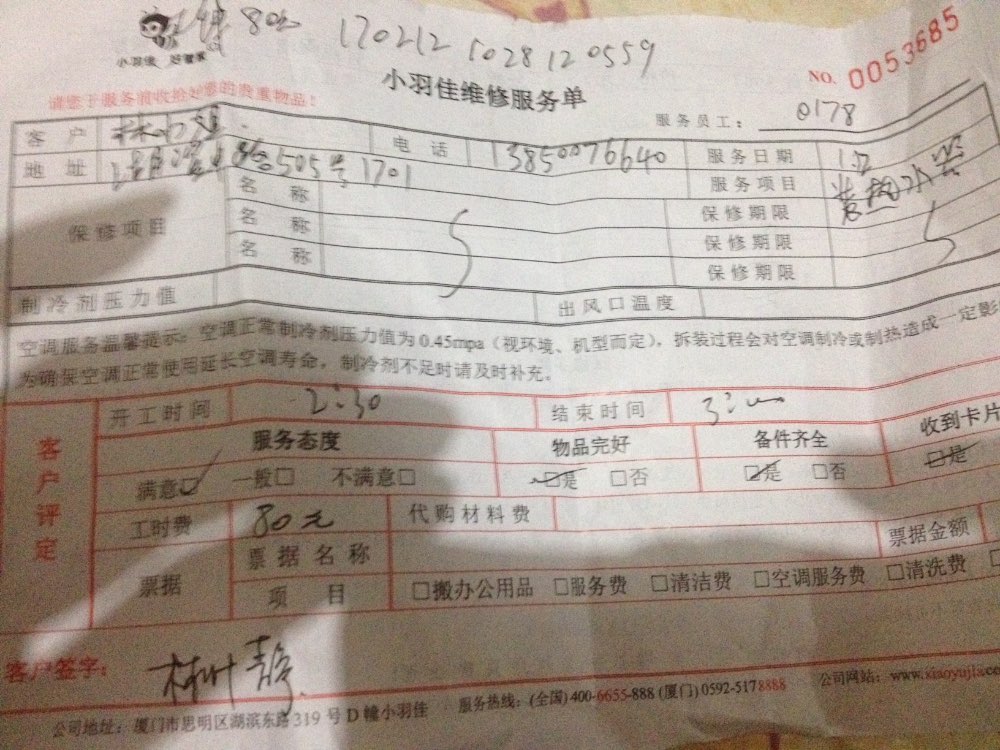 80元 170212 1028120559
小羽佳 好管家
小羽佳维修服务单
NO. 0053685
请您于服务前收拾好您的贵重物品！
服务员工： 0178
客 户 电 话 13850076640 服务日期
地 址 505号1701 服务项目
保修项目 名 称 保修期限
名 称 保修期限
名 称 保修期限
制冷剂压力值 出风口温度
空调服务温馨提示：空调正常制冷剂压力值为 0.45mpa（视环境、机型而定），拆装过程会对空调制冷或制热造成一定影
为确保空调正常使用延长空调寿命，制冷剂不足时请及时补充。
客户评定
开工时间 2:30 结束时间 3:00
服务态度 物品完好 备件齐全 收到卡片
满意☑ 一般□ 不满意□ ☑是 □否 ☑是 □否 ☑是
工时费 80元 代购材料费
票据 票据名称 票据金额
项 目 □搬办公用品 □服务费 □清洁费 □空调服务费 □清洗费
客户签字：
公司地址：厦门市思明区湖滨东路 319 号 D 幢小羽佳 服务热线：(全国) 400-6655-888 (厦门) 0592-5178888 公司网站：www.xiaoyujia.co